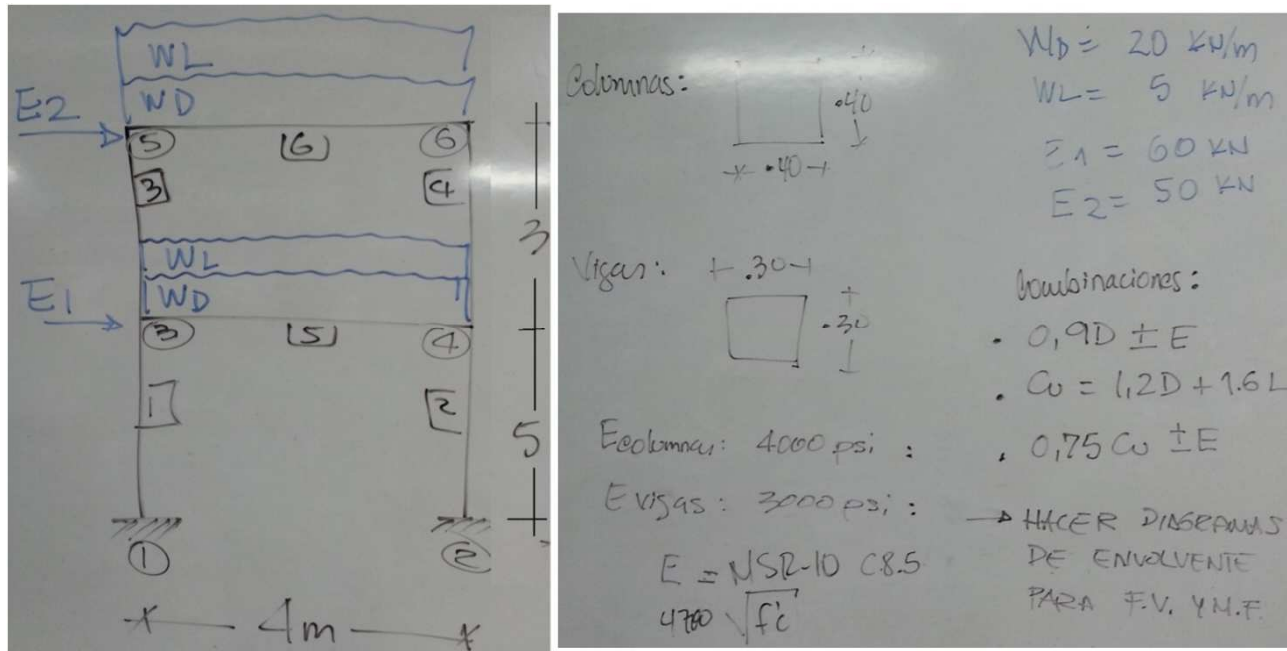 WL
WD
E2
5
6
6
3
4
3
WL
WD
E1
3
5
4
1
2
5
1
2
4m
Columnas:
.40
.40
Vigas:
.30
.30
Ecolumnas: 4000 psi :
Evigas: 3000 psi :
E = NSR-10 C8.5
4700 √f'c
WD = 20 KN/m
WL = 5 KN/m
E1 = 60 KN
E2 = 50 KN
Combinaciones:
• 0,9D ± E
• Cu = 1,2D + 1.6L
• 0,75 Cu ± E
→ HACER DIAGRAMAS
DE ENVOLVENTE
PARA F.V. Y M.F.